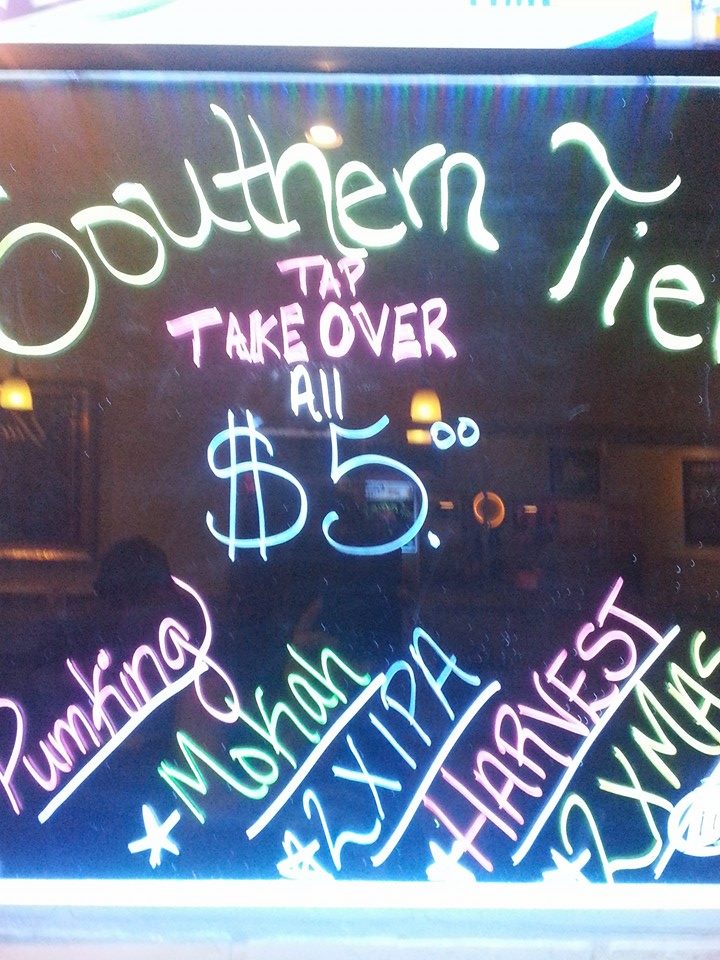 Southern Tier
TAP
TAKE OVER
All
$5.00
Pumking
Mokah
2XIPA
HARVEST
2XMAS